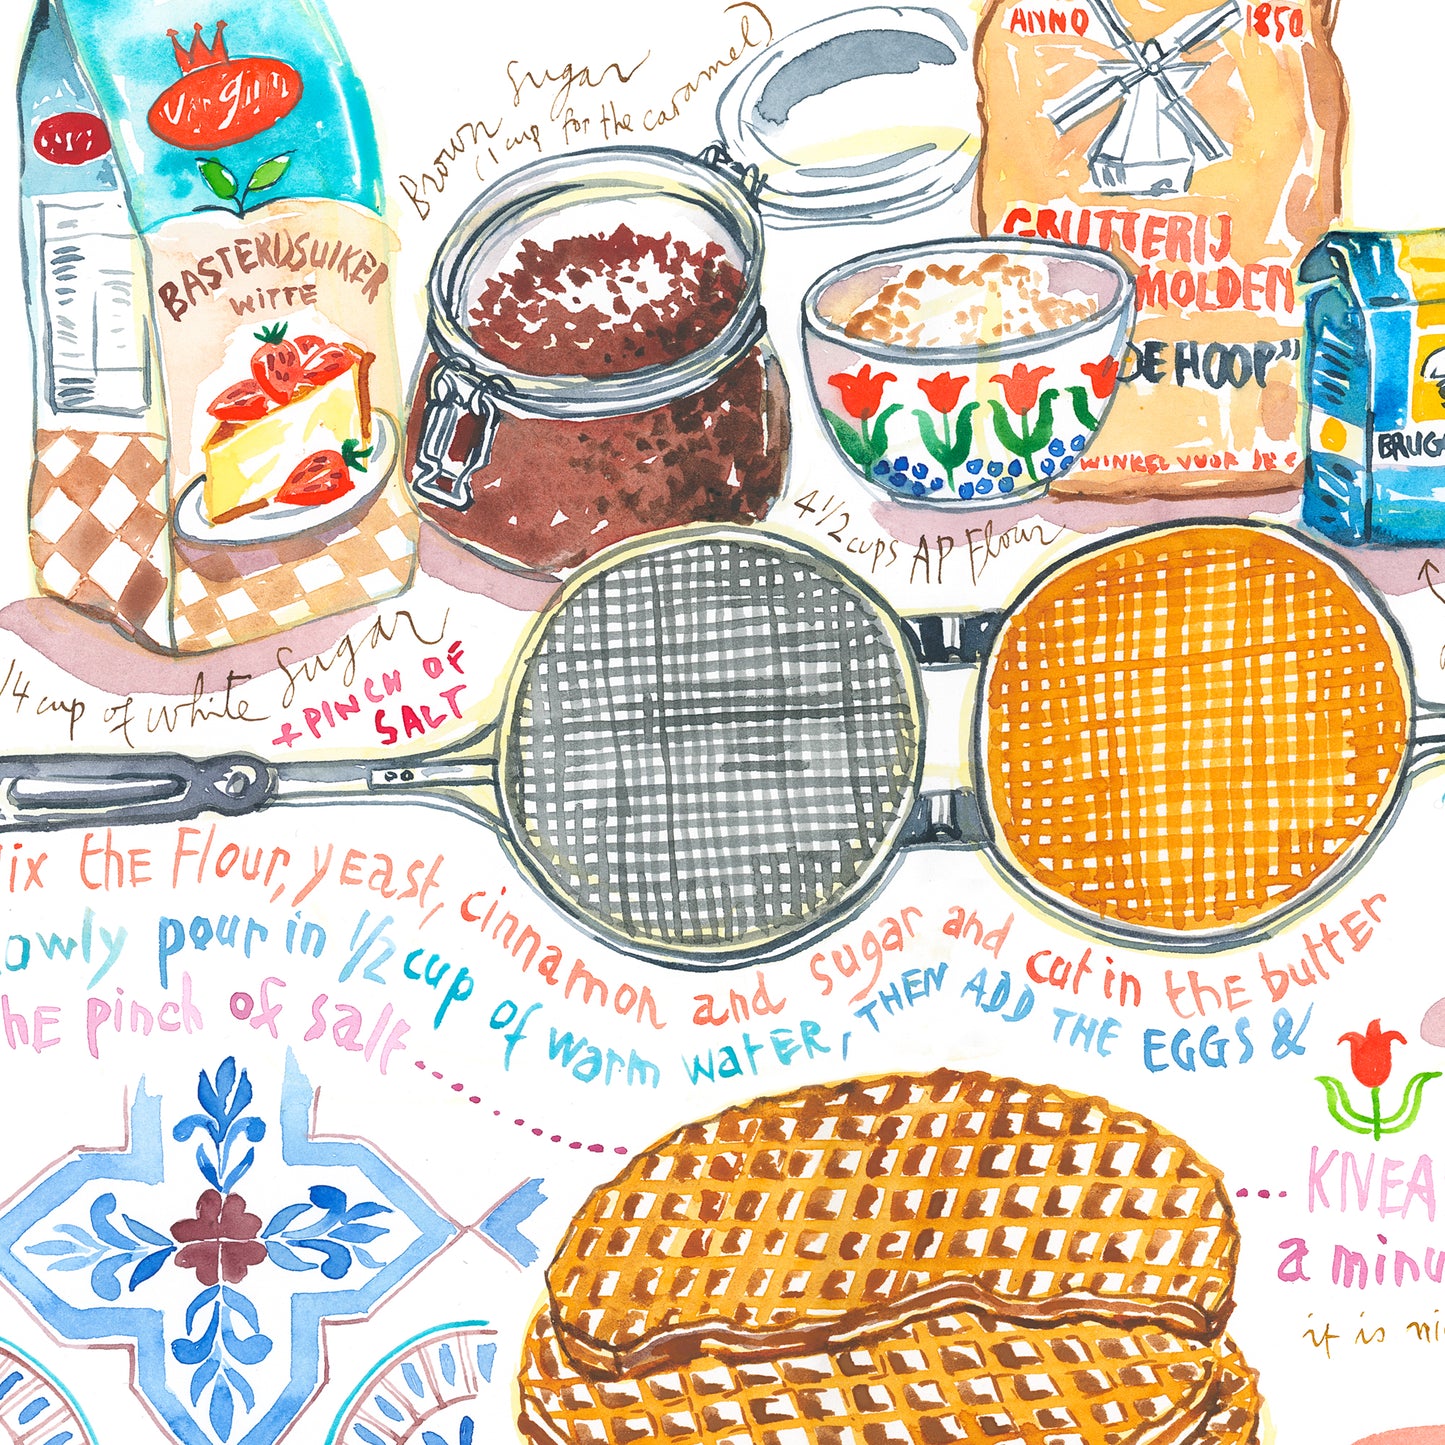 ANNO 1850
Van Gilse
BASTERDSUIKER
WITTE
Brown Sugar
(1 cup for the caramel)
GRUTTERIJ
MOLDEN
DE HOOP"
WINKEL VOOR DE
BRUG
4 1/2 cups AP Flour
/4 cup of white Sugar
+ PINCH OF
SALT
ix the Flour, yeast, cinnamon and sugar and cut in the butter
owly pour in 1/2 cup of warm water, THEN ADD THE EGGS &
he pinch of salt
KNEA
a minu
it is ni